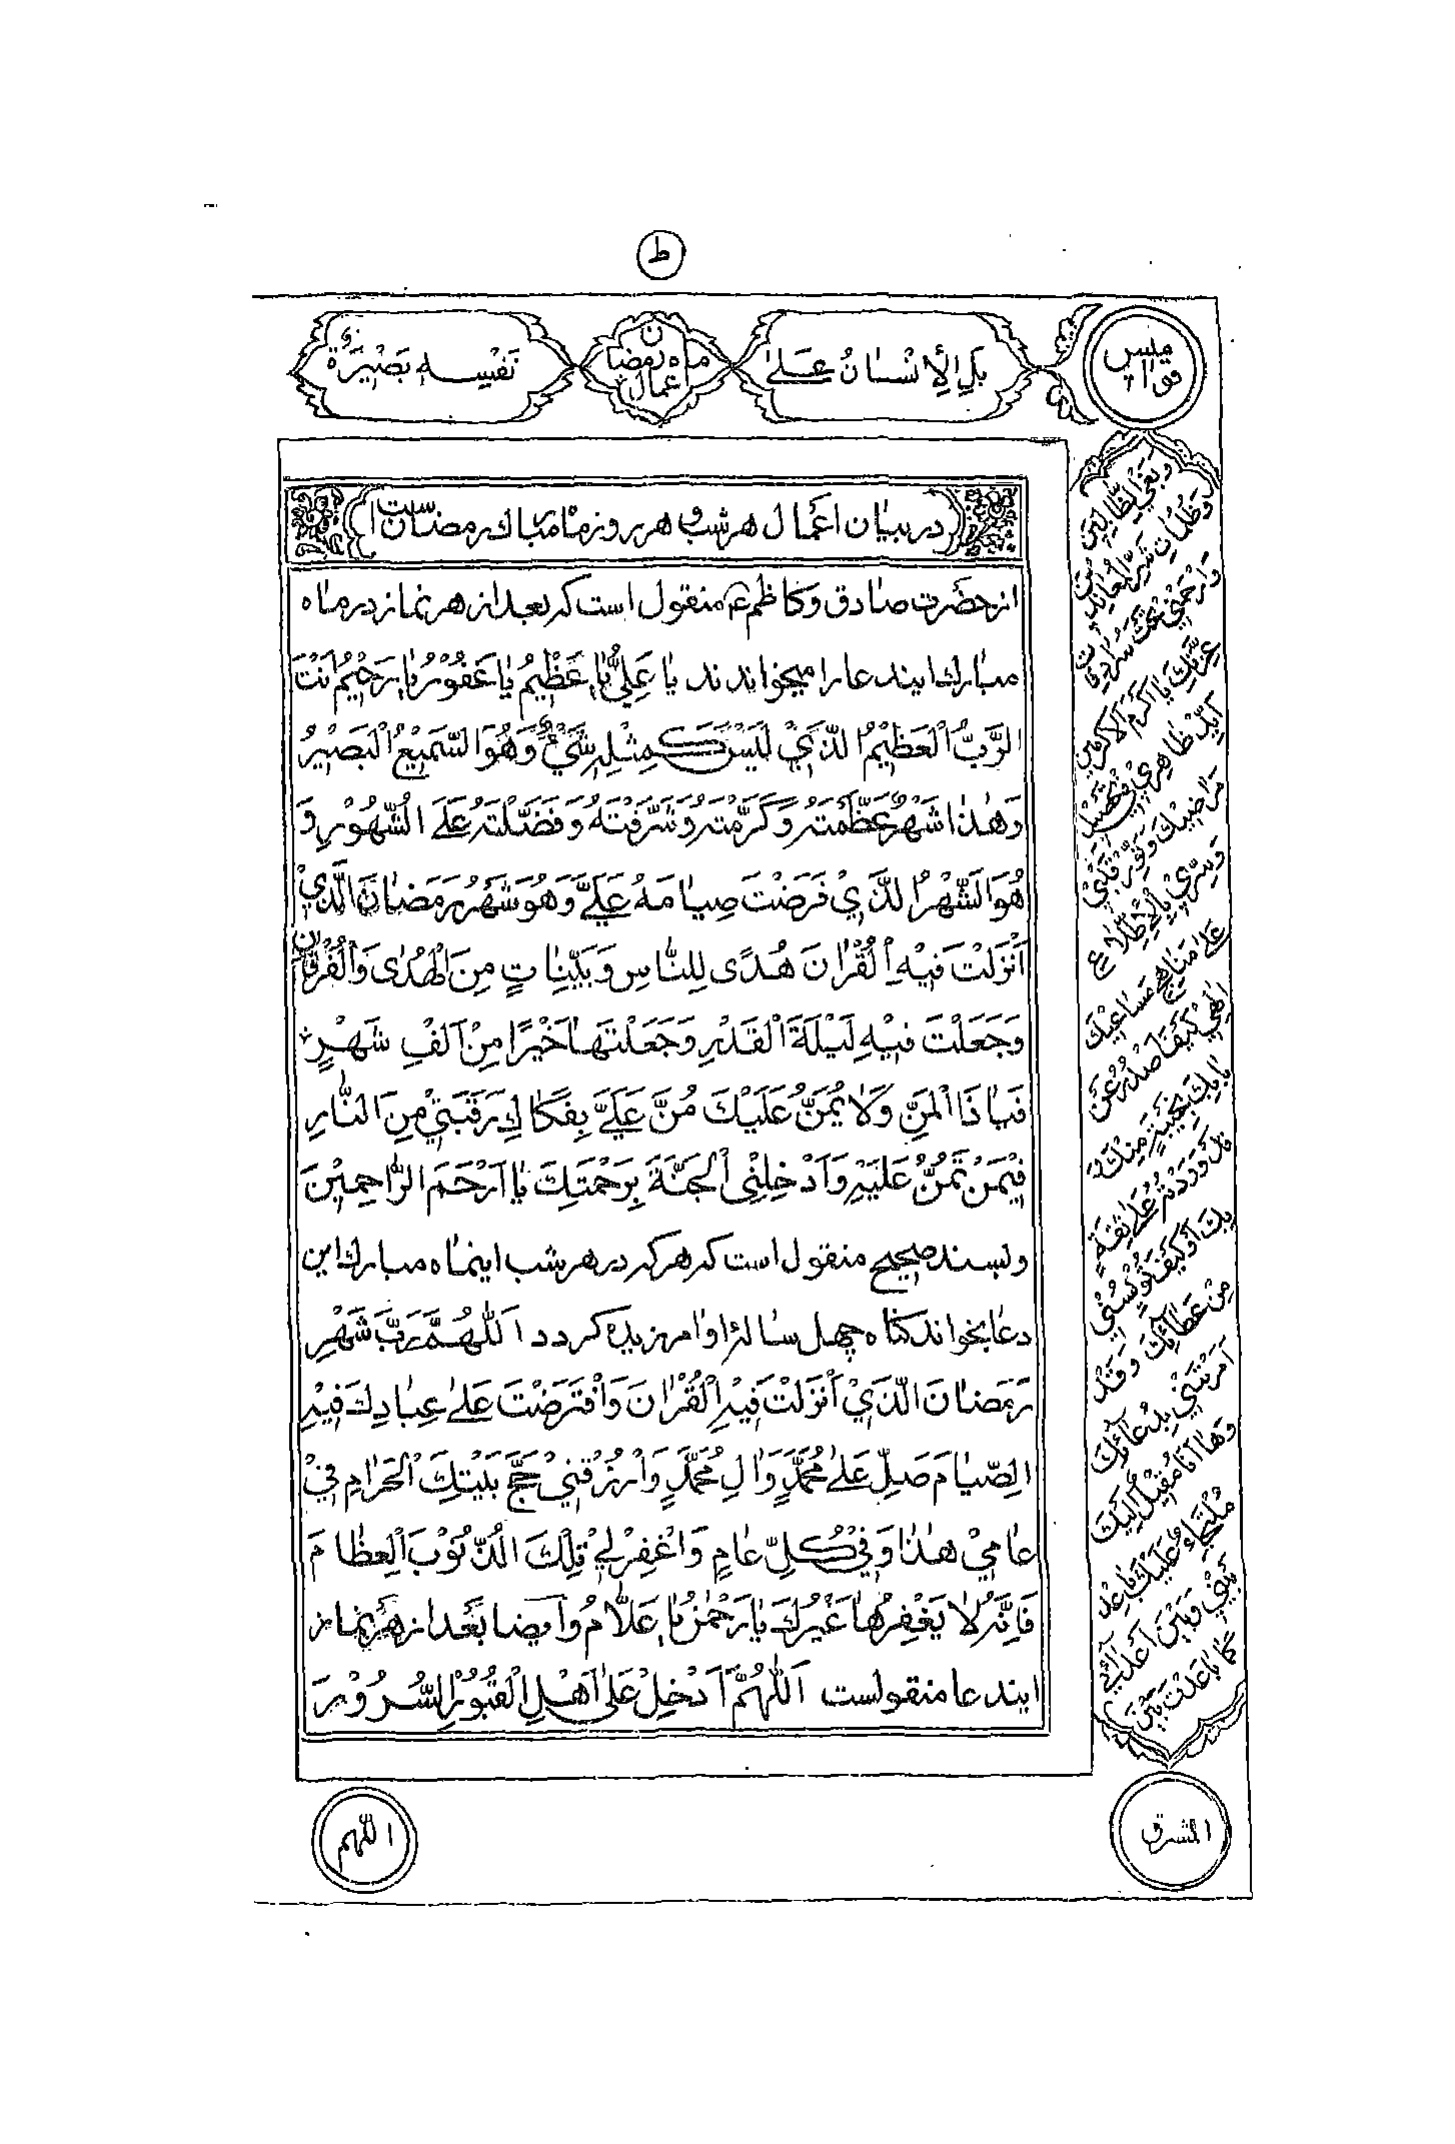 ط
بَلِ الْإِنْسَانُ عَلَىٰ
ماه رمضان
اعمال
نَفْسِهِ بَصِيرَةٌ
در بیان اعمال هر شب و هر روز ماه مبارک رمضانست
از حضرت صادق و کاظم ع منقول است که بعد از هر نماز در ماه
مبارک ایندعا را میخواندند یَا عَلِيُّ یَا عَظِیْمُ یَا غَفُوْرُ یَا رَحِیْمُ اَنْتَ
الرَّبُّ الْعَظِیْمُ الَّذِيْ لَیْسَ كَمِثْلِهِ شَيْءٌ وَهُوَ السَّمِیْعُ الْبَصِیْرُ
وَهٰذَا شَهْرٌ عَظَّمْتَهُ وَكَرَّمْتَهُ وَشَرَّفْتَهُ وَفَضَّلْتَهُ عَلَی الشُّهُوْرِ وَ
هُوَ الشَّهْرُ الَّذِيْ فَرَضْتَ صِیَامَهُ عَلَيَّ وَهُوَ شَهْرُ رَمَضَانَ الَّذِيْ
اَنْزَلْتَ فِیْهِ الْقُرْاٰنَ هُدًی لِلنَّاسِ وَبَیِّنَاتٍ مِنَ الْهُدٰی وَالْفُرْقَانِ
وَجَعَلْتَ فِیْهِ لَیْلَةَ الْقَدْرِ وَجَعَلْتَهَا خَیْرًا مِنْ اَلْفِ شَهْرٍ
فَیَا ذَا الْمَنِّ وَلَا یُمَنُّ عَلَیْكَ مُنَّ عَلَيَّ بِفَكَاكِ رَقَبَتِيْ مِنَ النَّارِ
فِیْمَنْ تَمُنُّ عَلَیْهِ وَاَدْخِلْنِی الْجَنَّةَ بِرَحْمَتِكَ یَا اَرْحَمَ الرَّاحِمِیْنَ
و بسند صحیح منقول است که هر که در هر شب اینماه مبارک این
دعا بخواند گناه چهل سالۀ او امرزیده گردد اَللّٰهُمَّ رَبَّ شَهْرِ
رَمَضَانَ الَّذِيْ اَنْزَلْتَ فِیْهِ الْقُرْاٰنَ وَافْتَرَضْتَ عَلٰی عِبَادِكَ فِیْهِ
الصِّیَامَ صَلِّ عَلٰی مُحَمَّدٍ وَاٰلِ مُحَمَّدٍ وَارْزُقْنِيْ حَجَّ بَیْتِكَ الْحَرَامِ فِيْ
عَامِيْ هٰذَا وَفِيْ كُلِّ عَامٍ وَاغْفِرْ لِيْ تِلْكَ الذُّنُوْبَ الْعِظَامَ
فَاِنَّهُ لَا یَغْفِرُهَا غَیْرُكَ یَا رَحْمٰنُ یَا عَلَّامُ وایضا بَعْد از هر نماز
ایندعا منقولست اَللّٰهُمَّ اَدْخِلْ عَلٰی اَهْلِ الْقُبُوْرِ السُّرُوْرَ
وَبَغْيِ الطَّالِبِيْنَ
وَظُلُمَاتِ شَرِّ الْمُعَانِدِيْنَ
وَارْحَمْنِيْ تَحْتَ سُرَادِقَاتِ
عِزِّكَ يَا اَكْرَمَ الْاَكْرَمِيْنَ
اَيِّدْ ظَاهِرِيْ فِيْ تَحْصِيْلِ
مَرَاضِيْكَ وَنَوِّرْ قَلْبِيْ
وَسِرِّيْ بِالْاِطِّلَاعِ
عَلٰی مَنَاهِجِ مَسَاعِيْكَ
اِلٰهِيْ كَيْفَ اَصْدُرُ عَنْ
بَابِكَ بِخَيْبَةٍ مِنْكَ وَ
قَدْ وَرَدْتُهُ عَلٰی ثِقَةٍ
بِكَ اَوْ كَيْفَ تُؤْيِسُنِيْ
مِنْ عَطَائِكَ وَقَدْ
اَمَرْتَنِيْ بِدُعَائِكَ
وَهَا اَنَا مُقْبِلٌ اِلَيْكَ
مُلْتَجِئٌ عَلَيْكَ بَاعِدْ
بَيْنِيْ وَبَيْنَ اَعْدَائِيْ
كَمَا بَاعَدْتَ بَيْنَ
المشرق
اللهم